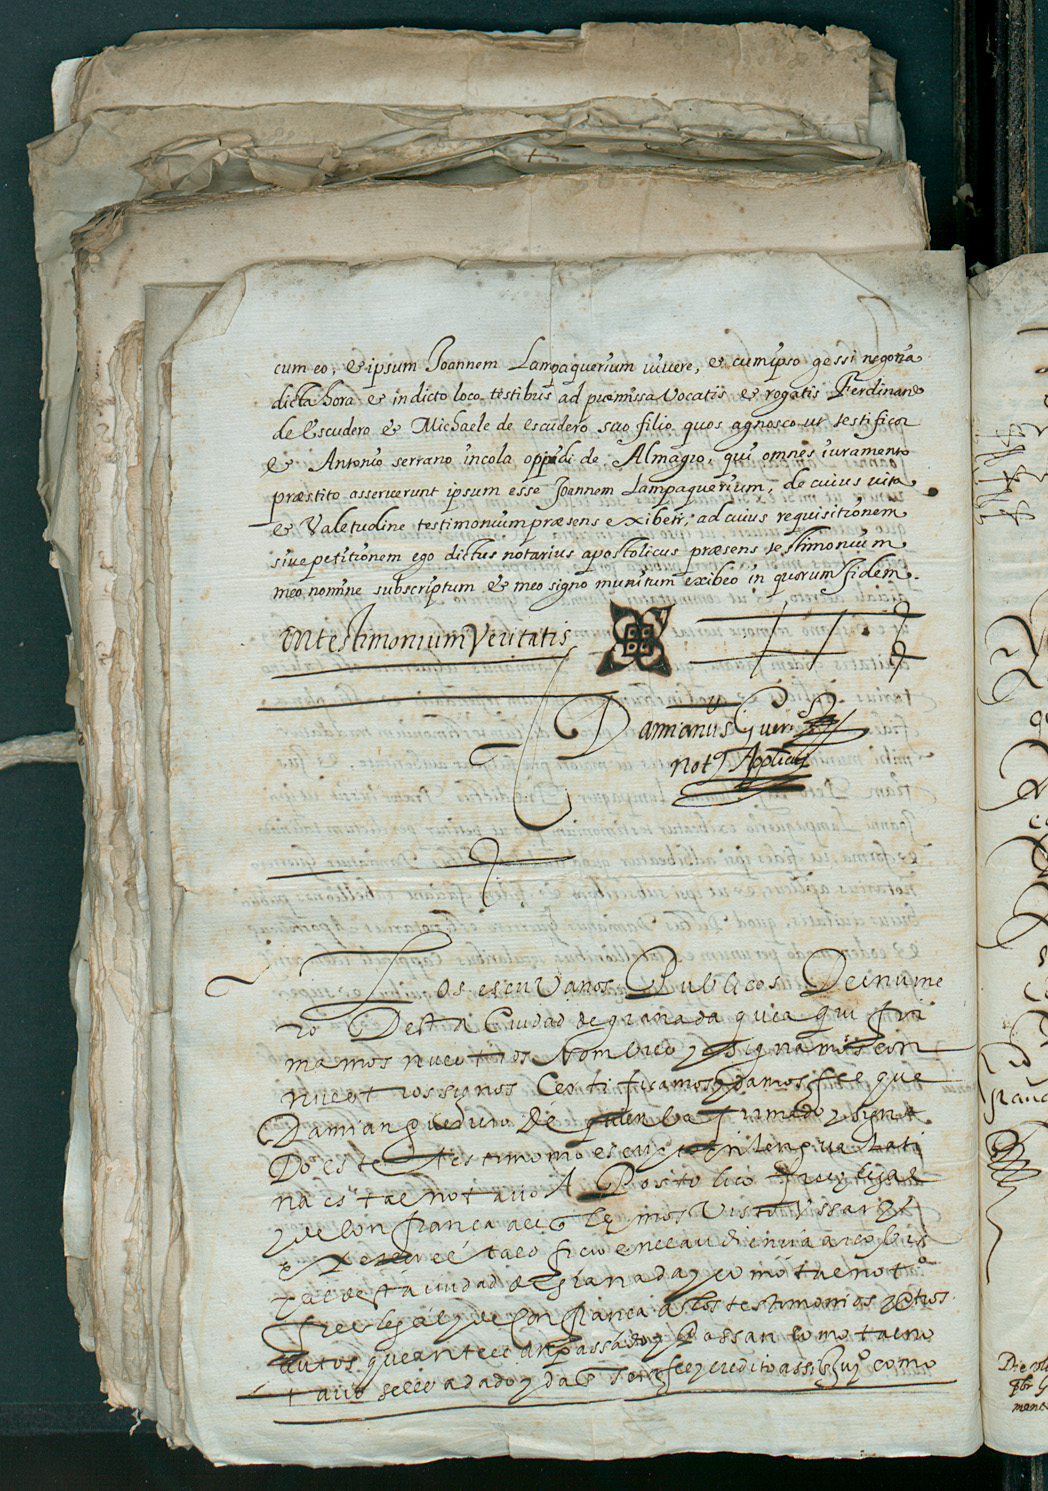 cum eo, & ipsum Joannem Lampaquerium viuere, & cum ipso gessi negotia
dicta hora & in dicto loco testibus ad præmissa vocatis & rogatis Ferdinando
de Escudero & Michaele de escudero suo filio quos agnosco ut testificor
& Antonio serrano incola oppidi de Almagro, qui omnes iuramento
præstito asseruerunt ipsum esse Joannem Lampaquerium, de cuius vita
& Valetudine testimonium præsens exibetr, ad cuius requisitionem
siue petitionem ego dictus notarius apostolicus præsens testimonium
meo nomine subscriptum & meo signo munitum exibeo in quorum fidem.
In testimonium Veritatis
Damianus
nots Applicus
Los escriuanos Publicos Del nume
ro Desta Ciudad de granada que a qui fir
mamos nuestros nombres y signamos con
nuestros signos Certificamos y damos fee que
Damian guerrero De quien ba firmado y signa
Do este testimonio escripto en lengua lati
na es tal notario A Postolico fiel y legal
y de confiança a el qual le emos Visto Vssar y
exercer el tal oficio en la audiencia arçobis
pal desta ciudad de granada y como tal notº
fiel legal y de confiança a los testimonios y otros
autos que ante el an passado y Passan como tal no
tario se le a dado y da entera fee y credito assi en juyº como